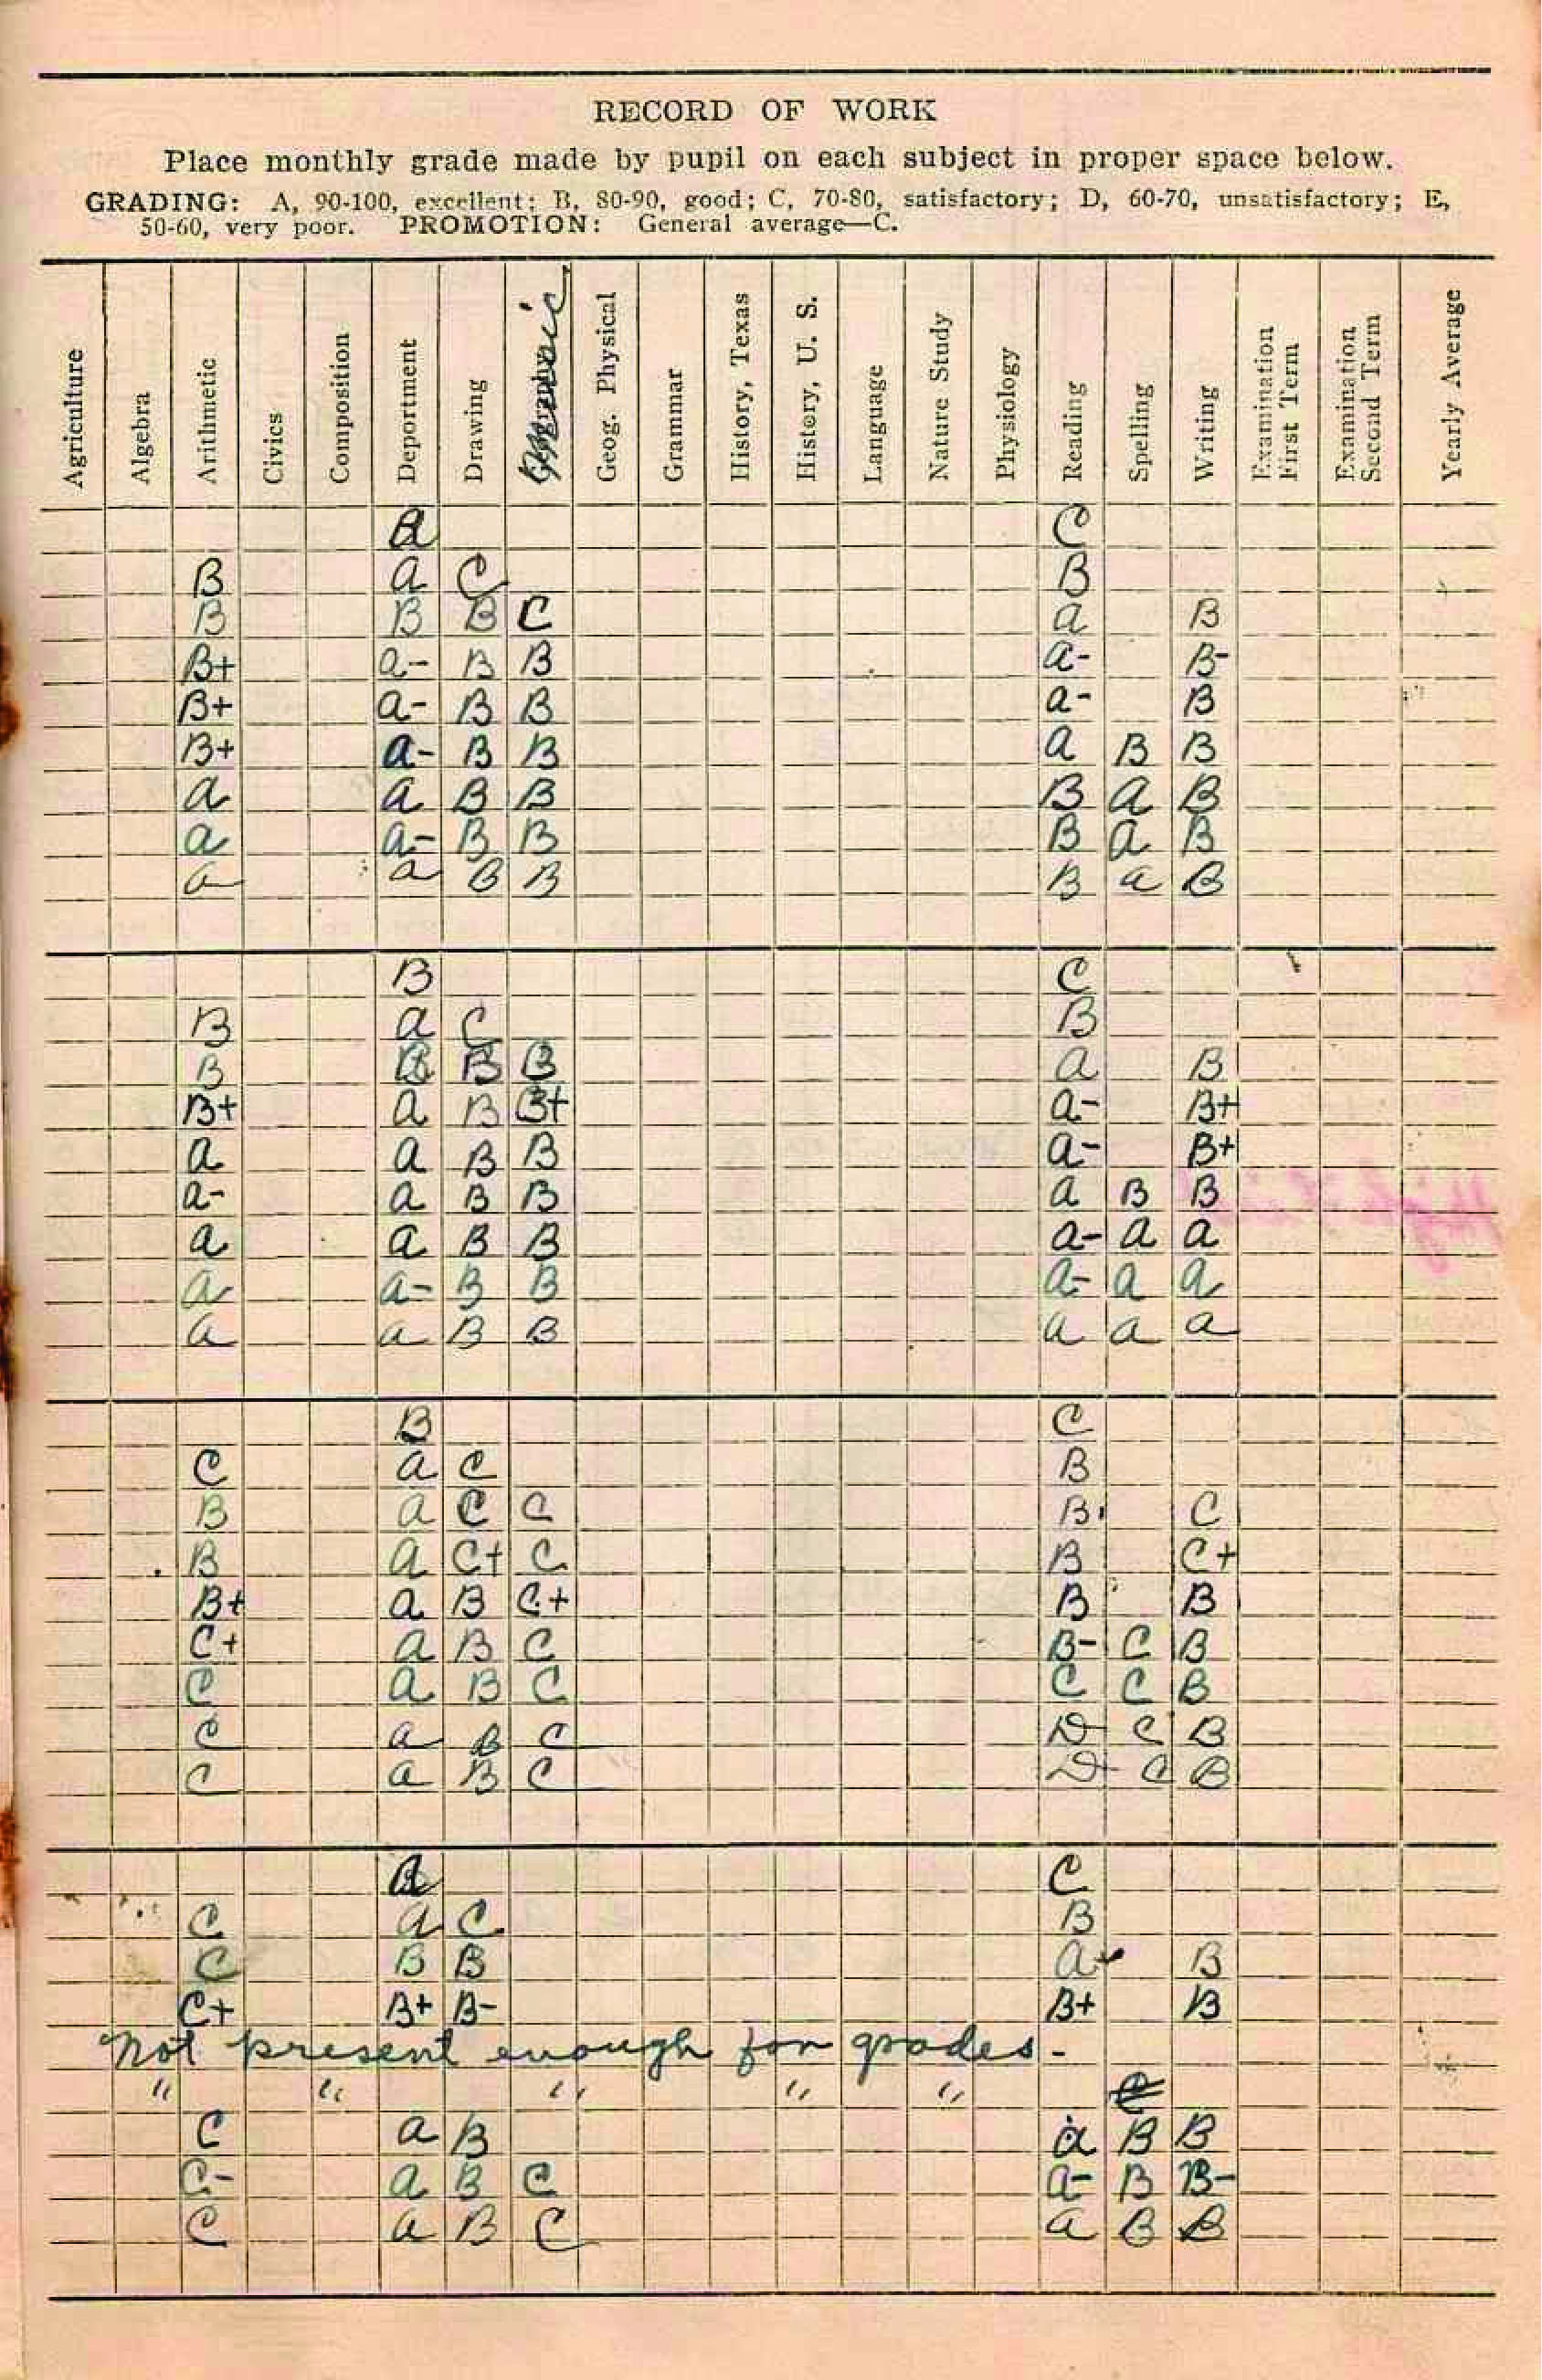 RECORD OF WORK
Place monthly grade made by pupil on each subject in proper space below.
GRADING: A, 90-100, excellent; B, 80-90, good; C, 70-80, satisfactory; D, 60-70, unsatisfactory; E,
50-60, very poor. PROMOTION: General average—C.
Agriculture Algebra Arithmetic Civics Composition Deportment Drawing Music Geog. Physical Grammar History, Texas History, U. S. Language Nature Study Physiology Reading Spelling Writing Examination First Term Examination Second Term Yearly Average
C
B a C B
B B B C a B
B+ a- B B a- B-
B+ a- B B a- B
B+ a- B B a B B
a a B B B a B
a a- B B B a B
a a B B B a B
B C
B a C B
B B B B a B
B+ a B B+ a- B+
a a B B a- B+
a- a B B a B B
a a B B a- a a
a a- B B a- a a
a a B B a a a
B C
C a C B
B a C C B C
B a C+ C B C+
B+ a B C+ B B
C+ a B C B- C B
C a B C C C B
C a B C D C B
C a B C D C B
C
C a C B
C B B a B
C+ B+ B- B+ B
Not present enough for grades -
" " " " "
C a B a B B
C- a B C a- B B-
C a B C a B B